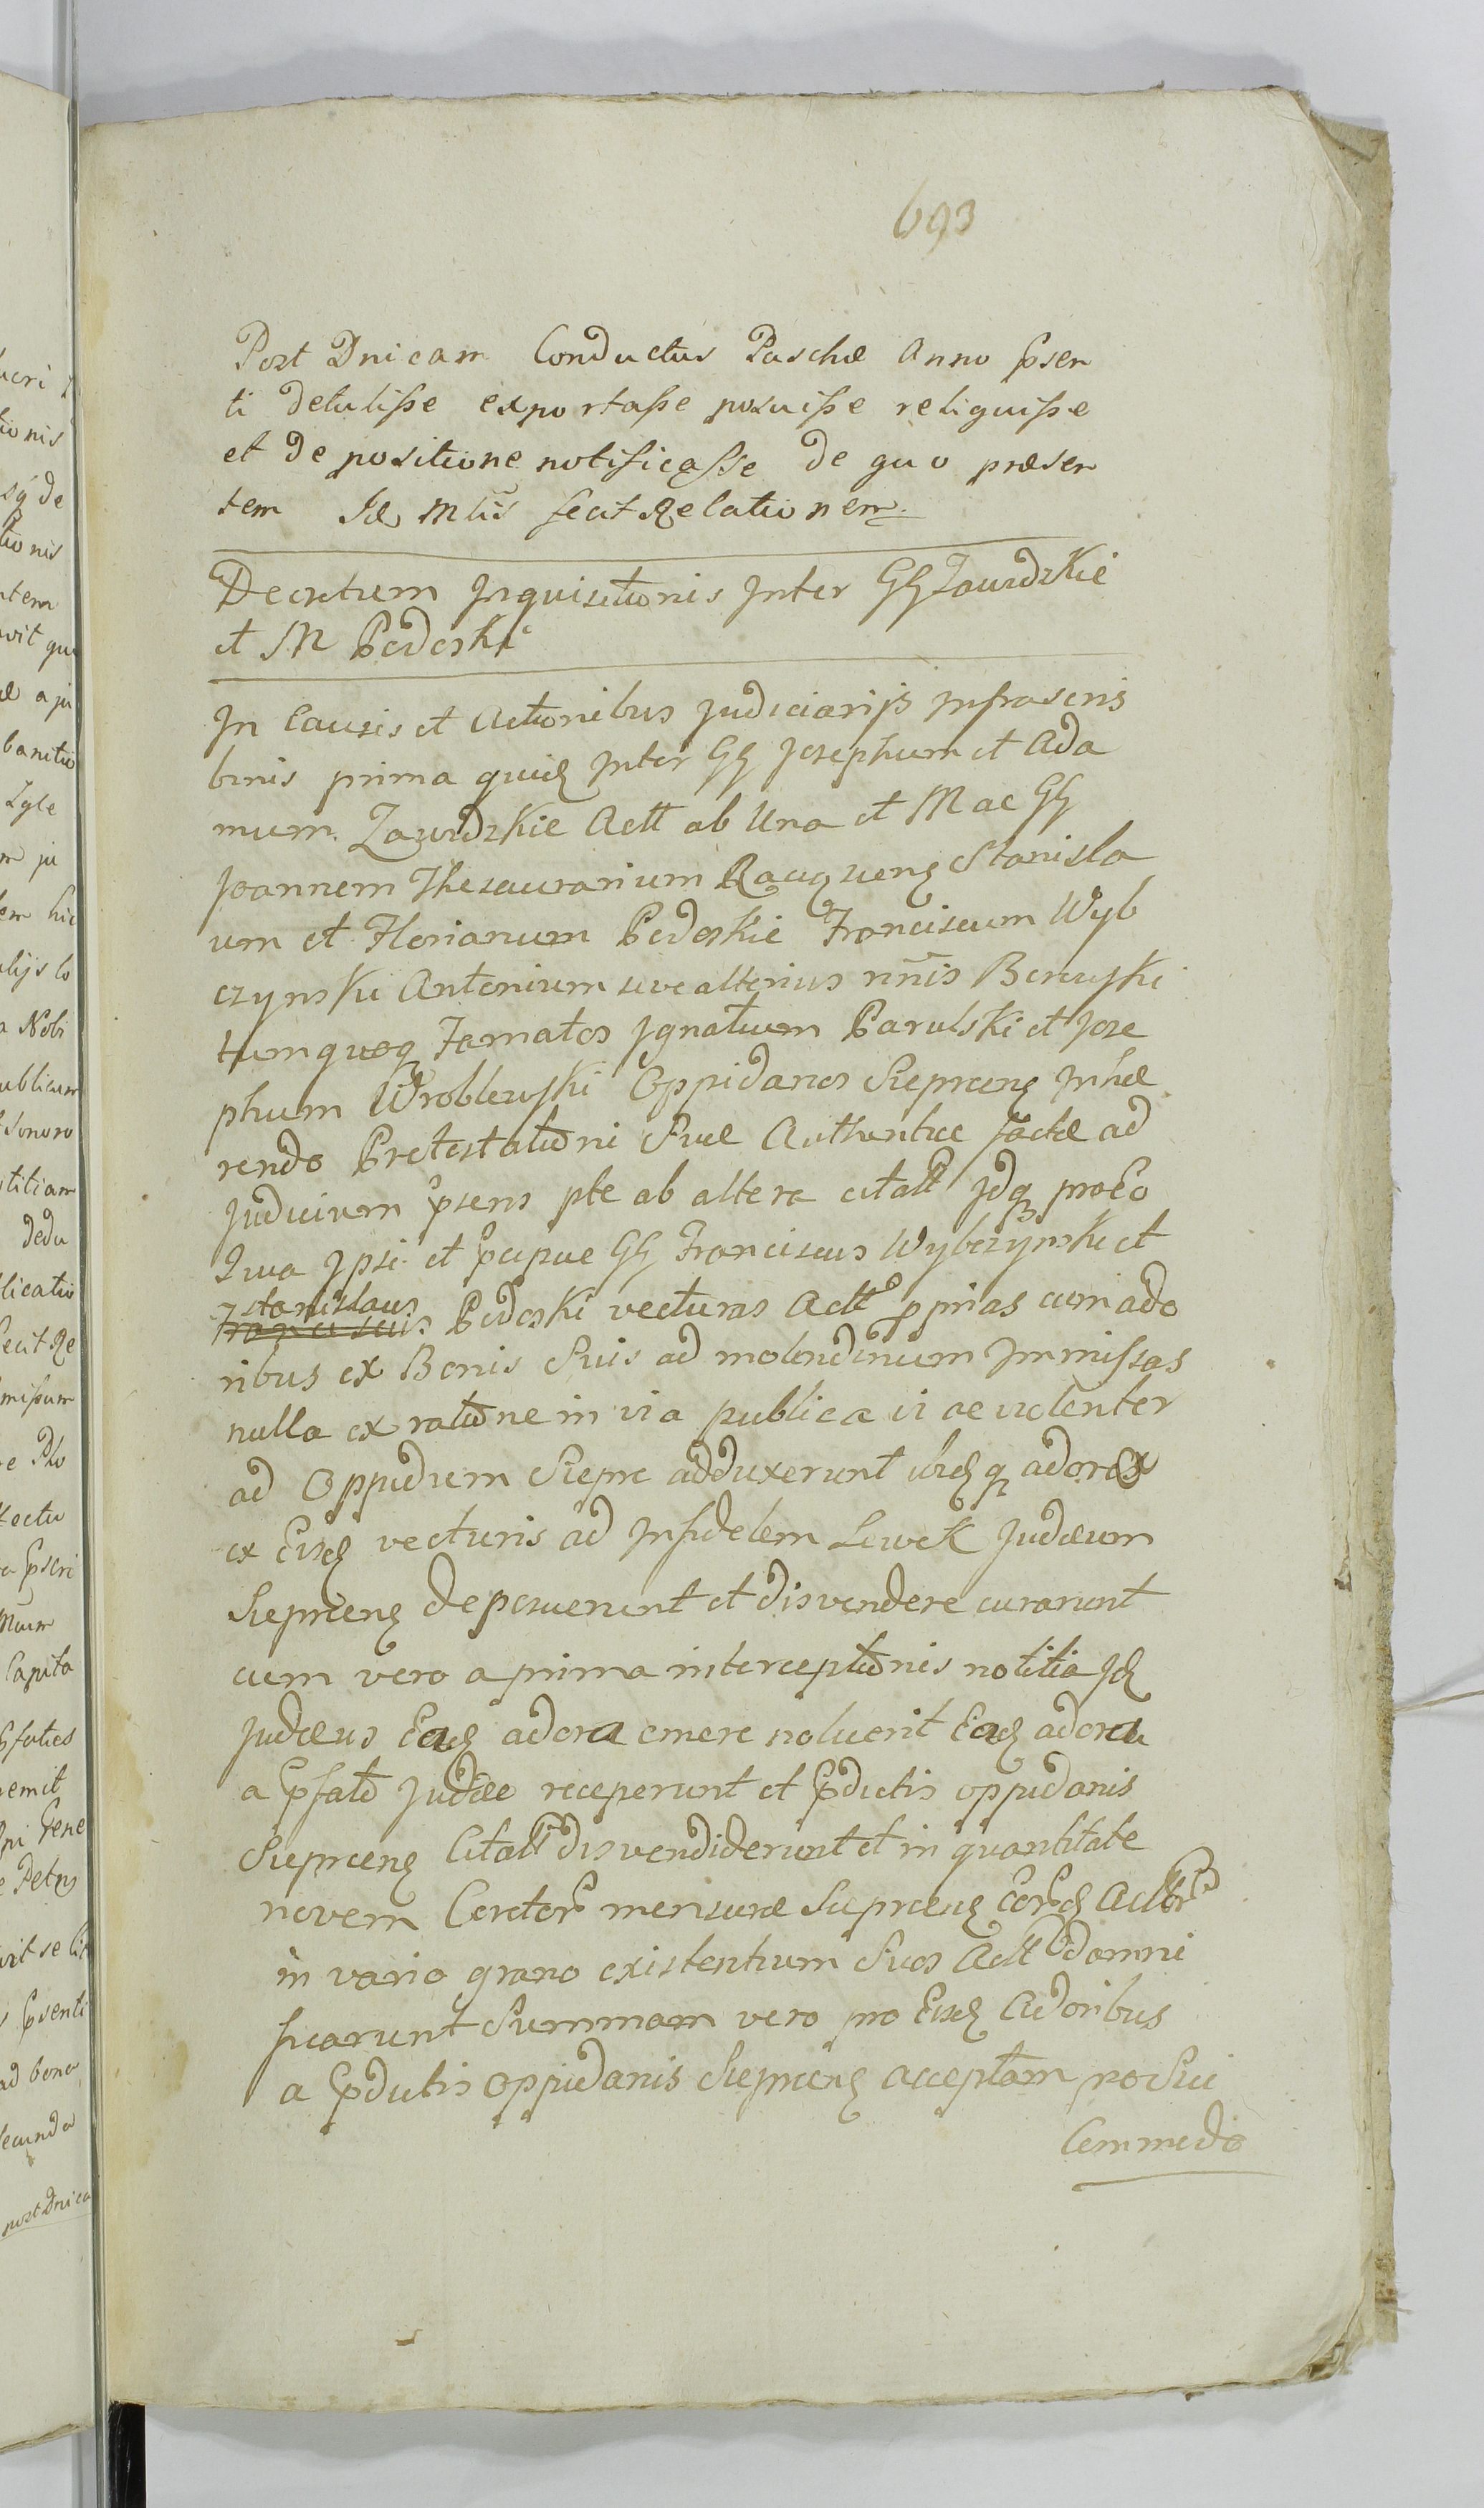 693
Post Dnicam Conductus Paschæ Anno Psen
ti detulisse exportasse posuisse reliquisse
et de positione notificasse de quo præsen
tem Id Mtis fecit Relationem
Decretum Inquisitionis Inter GG Zawdzkie
et M Podoski
In Causis et Actionibus Judiciarijs Infrascris
binis prima quid Inter GG Josephum et Ada
mum Zawdzkie Actt ab Una et M ac GG
Joannem Thesaurarium Stanisla
um et Florianum Podoskie Franciscum Wyb
czynski Antonium sive alterius nnis
tum quoq Famatos Ignatium Parulski et Jose
phum Wroblewski Oppidanos Sieprcens Inhæ
rendo Protestationi Suæ Authentice factæ ad
Judicium Psens pte ab altera citatt Idq pro Eo
Qua Ipsi et Pcipue GG Franciscus Wybczynski et
Stanislaus
Franciscus Podoski vecturas Actt pprias cum ado
ribus ex Bonis Suis ad molendinum Immissas
nulla ex ratione in via publica vi ac violenter
ad Oppidum Sieprc adduxerunt ibidq adorex
ex Eisd vecturis ad Infidelem Lewek Judæum
Sieprcens deposuerunt et disvendere curarunt
cum vero a prima interceptionis notitia Id
Judæus Ead adora emere noluerit Ead adora
a Pfato Judæe receperunt et Pdictis oppidanis
Sieprcens Citatt disvendiderunt et in quantitate
novem Coretor mensuræ Sieprcens Eord Acttr
in vario grano existentium Suos Actt damni
ficarunt Summam vero pro Eisd Adoribus
a Pdictis oppidanis Sieprcens acceptam pro Sui
Commodo